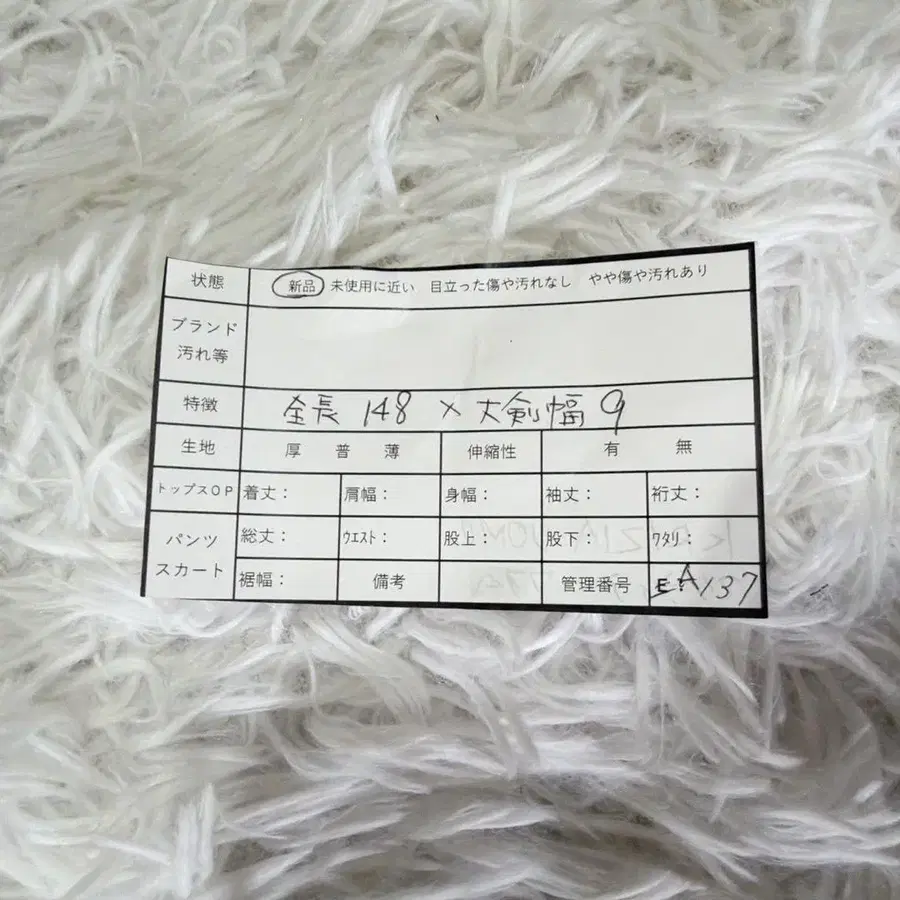 状態 新品 未使用に近い 目立った傷や汚れなし やや傷や汚れあり
ブランド
汚れ等
特徴 全長 148 × 大剣幅 9
生地 厚 普 薄 伸縮性 有 無
トップスOP 着丈: 肩幅: 身幅: 袖丈: 裄丈:
パンツ
スカート
総丈: ウエスト: 股上: 股下: ワタリ:
裾幅: 備考 管理番号 EA137